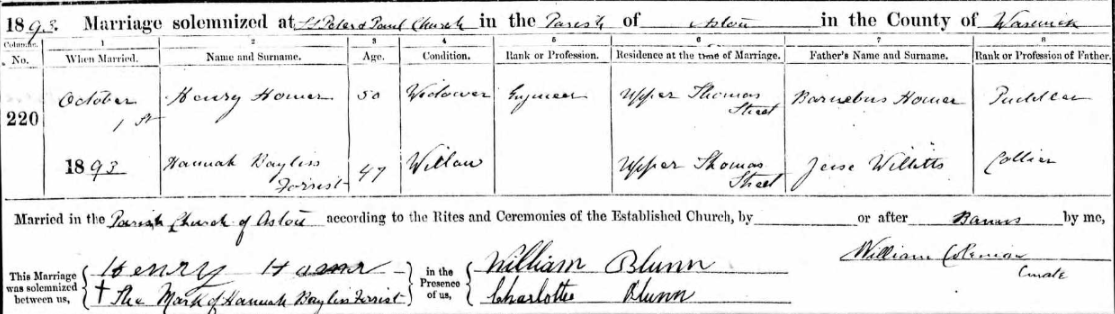 1893. Marriage solemnized at St Peter & Paul Church in the Parish of Aston in the County of Warwick
Columns:— 1 2 3 4 5 6 7 8
No. When Married. Name and Surname. Age. Condition. Rank or Profession. Residence at the time of Marriage. Father's Name and Surname. Rank or Profession of Father.
220 October 1st Henry Homer 50 Widower Engineer Upper Thomas Street Barnebus Homer Puddler
1893 Hannah Bayliss Forrist 47 Widow Upper Thomas Street Jesse Willitts Collier
Married in the Parish Church of Aston according to the Rites and Ceremonies of the Established Church, by or after Banns by me,
This Marriage was solemnized between us, Henry Homer in the Presence of us, William Blunn William Coleman
† The Mark of Hannah Bayliss Forrist Charlotte Blunn Curate